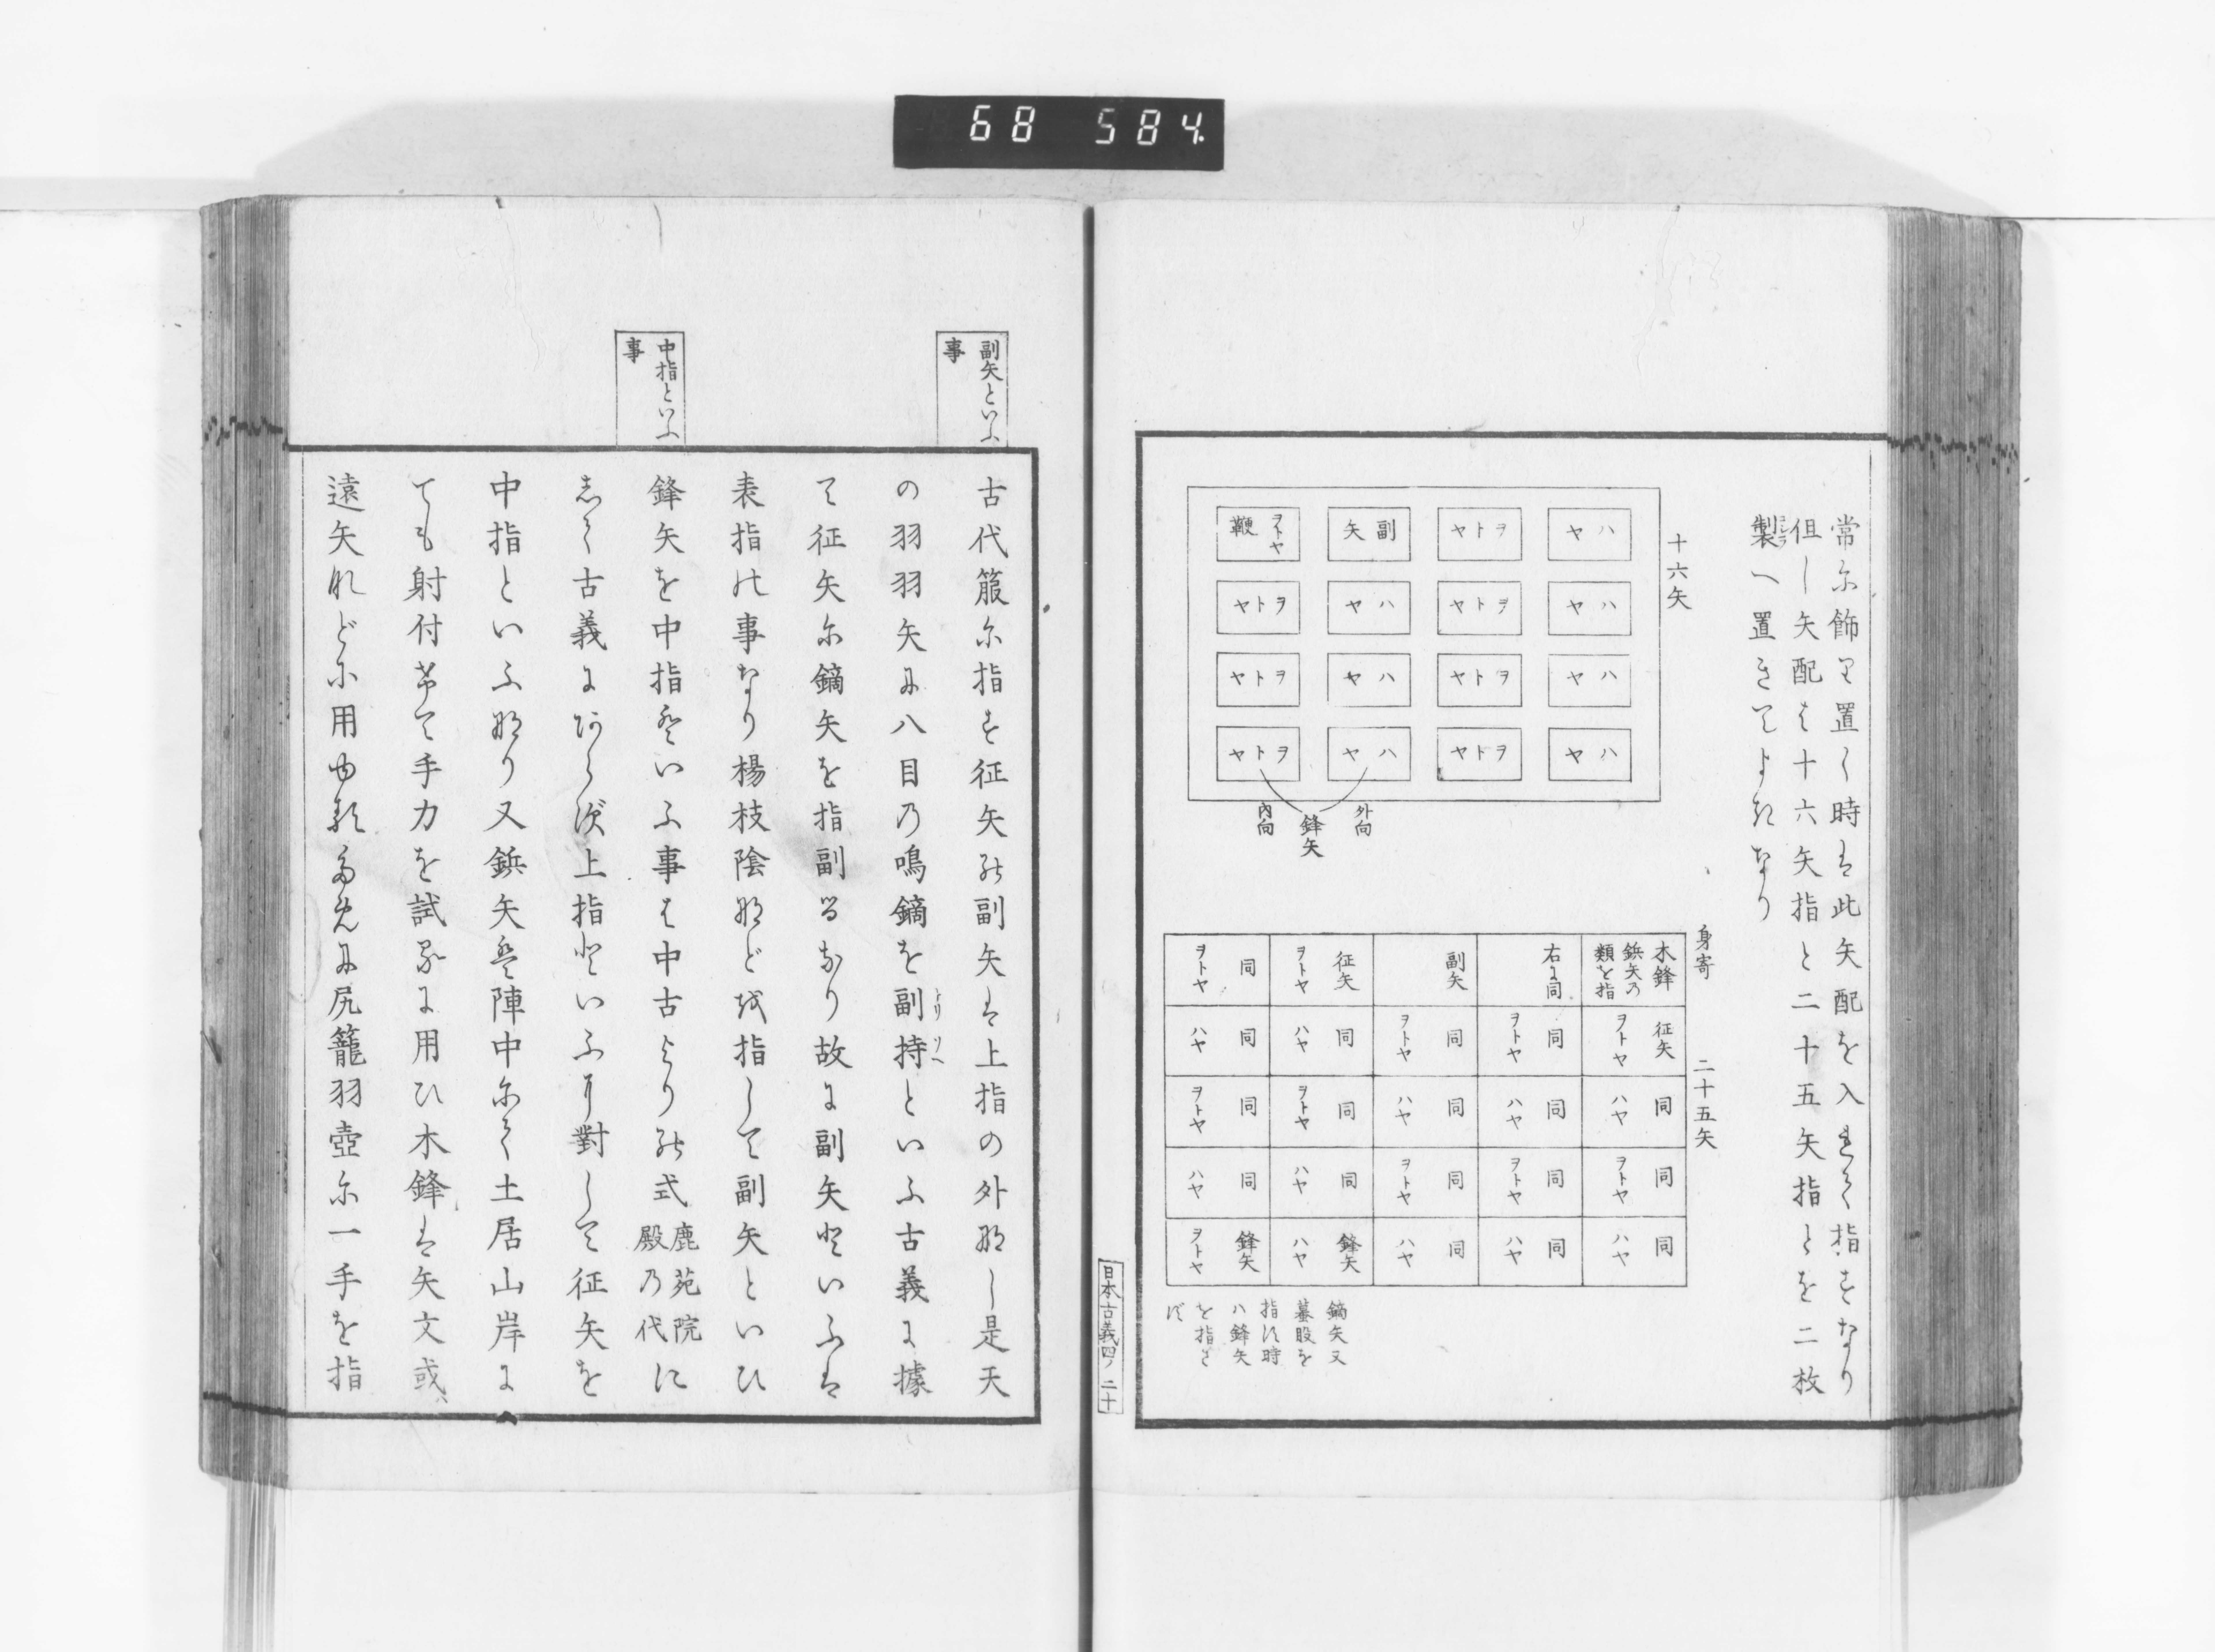 68 584.
常尓飾里置く時は此矢配を入連て指すなり
但し矢配は十六矢指と二十五矢指とを二枚
製へ置きてよきなり
十六矢
ハヤ
ヲトヤ
副矢
ヲトヤ 鞭
ハヤ
ヲトヤ
ハヤ
ヲトヤ
ハヤ
ヲトヤ
ハヤ
ヲトヤ
ハヤ
ヲトヤ
ハヤ
ヲトヤ
外向
鋒矢
内向
身寄
二十五矢
木鋒 鋲矢乃 類を指
右に同
副矢
征矢 ヲトヤ
同 ヲトヤ
征矢 ヲトヤ
同 ヲトヤ
同 ヲトヤ
同 ハヤ
同 ハヤ
同 ハヤ
同 ハヤ
同 ハヤ
同 ヲトヤ
同 ヲトヤ
同 ヲトヤ
同 ヲトヤ
同 ヲトヤ
同 ハヤ
同 ハヤ
同 ハヤ
同 ハヤ
同 ハヤ
鋒矢 ハヤ
鋒矢 ヲトヤ
鏑矢又
蟇股を
指す時
ハ鋒矢
を指さ
ず
日本古義四ノ 二十
副矢といふ
事
古代箙尓指す征矢能副矢は上指の外那し是天
の羽羽矢に八目乃鳴鏑を副持といふ古義に據
て征矢尓鏑矢を指副るなり故に副矢といふは
表指の事なり楊枝陰那ど越指して副矢といひ
中指といふ
事
鋒矢を中指登いふ事は中古より能式鹿苑院
殿乃代に
志て古義にあらず上指といふに對して征矢を
中指といふ那り又鋲矢登陣中尓て土居山岸に
ても射付希て手力を試るに用ひ木鋒は矢文或
遠矢などに用ゆるゝために尻籠羽壺尓一手を指